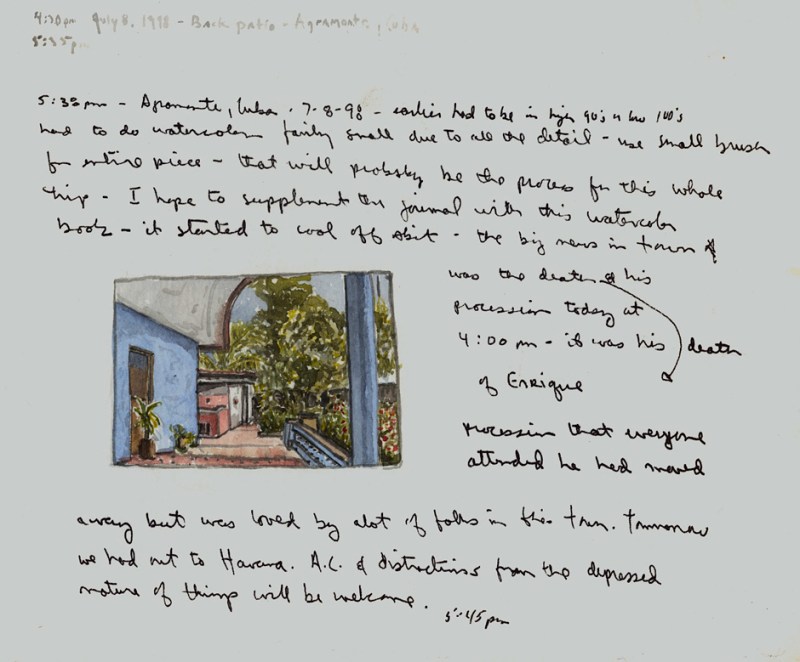 4:30pm July 8, 1998 - Back patio - Agramonte, Cuba
5:35pm
5:35pm - Agramonte, Cuba. 7-8-98 - earlier had to be in high 90's or low 100's
had to do watercolor fairly small due to all the detail - use small brush
for entire piece - that will probably be the process for this whole
trip. I hope to supplement the journal with this watercolor
book - it started to cool off abit - the big news in town
was the death & his
procession today at
4:00 pm - it was his death
of Enrique
procession that everyone
attended he had moved
away but was loved by alot of folks in this town. Tommorow
we head out to Havana. A.C. & distractions from the depressed
nature of things will be welcome.
5:45pm